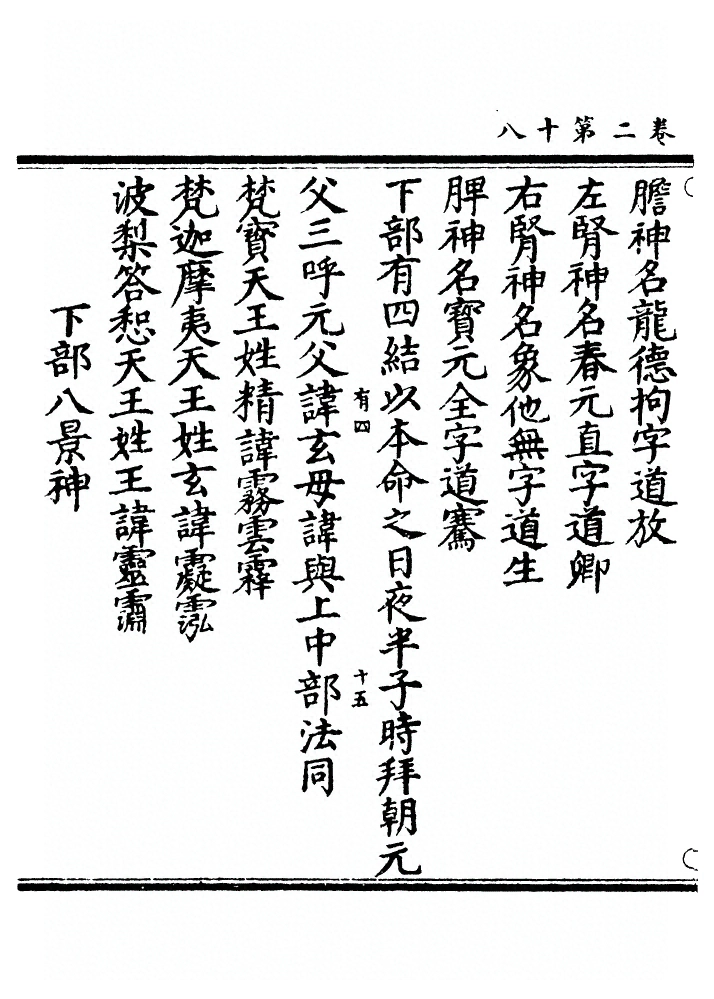 卷二第十八
膽神名龍德拘字道放
左腎神名春元直字道卿
右腎神名象他無字道生
脾神名寶元全字道騫
下部有四結以本命之日夜半子時拜朝元
有四
十五
父三呼元父諱玄母諱與上中部法同
梵寶天王姓精諱霧雲
梵迦摩夷天王姓玄諱
波梨答惒天王姓王諱靈
下部八景神